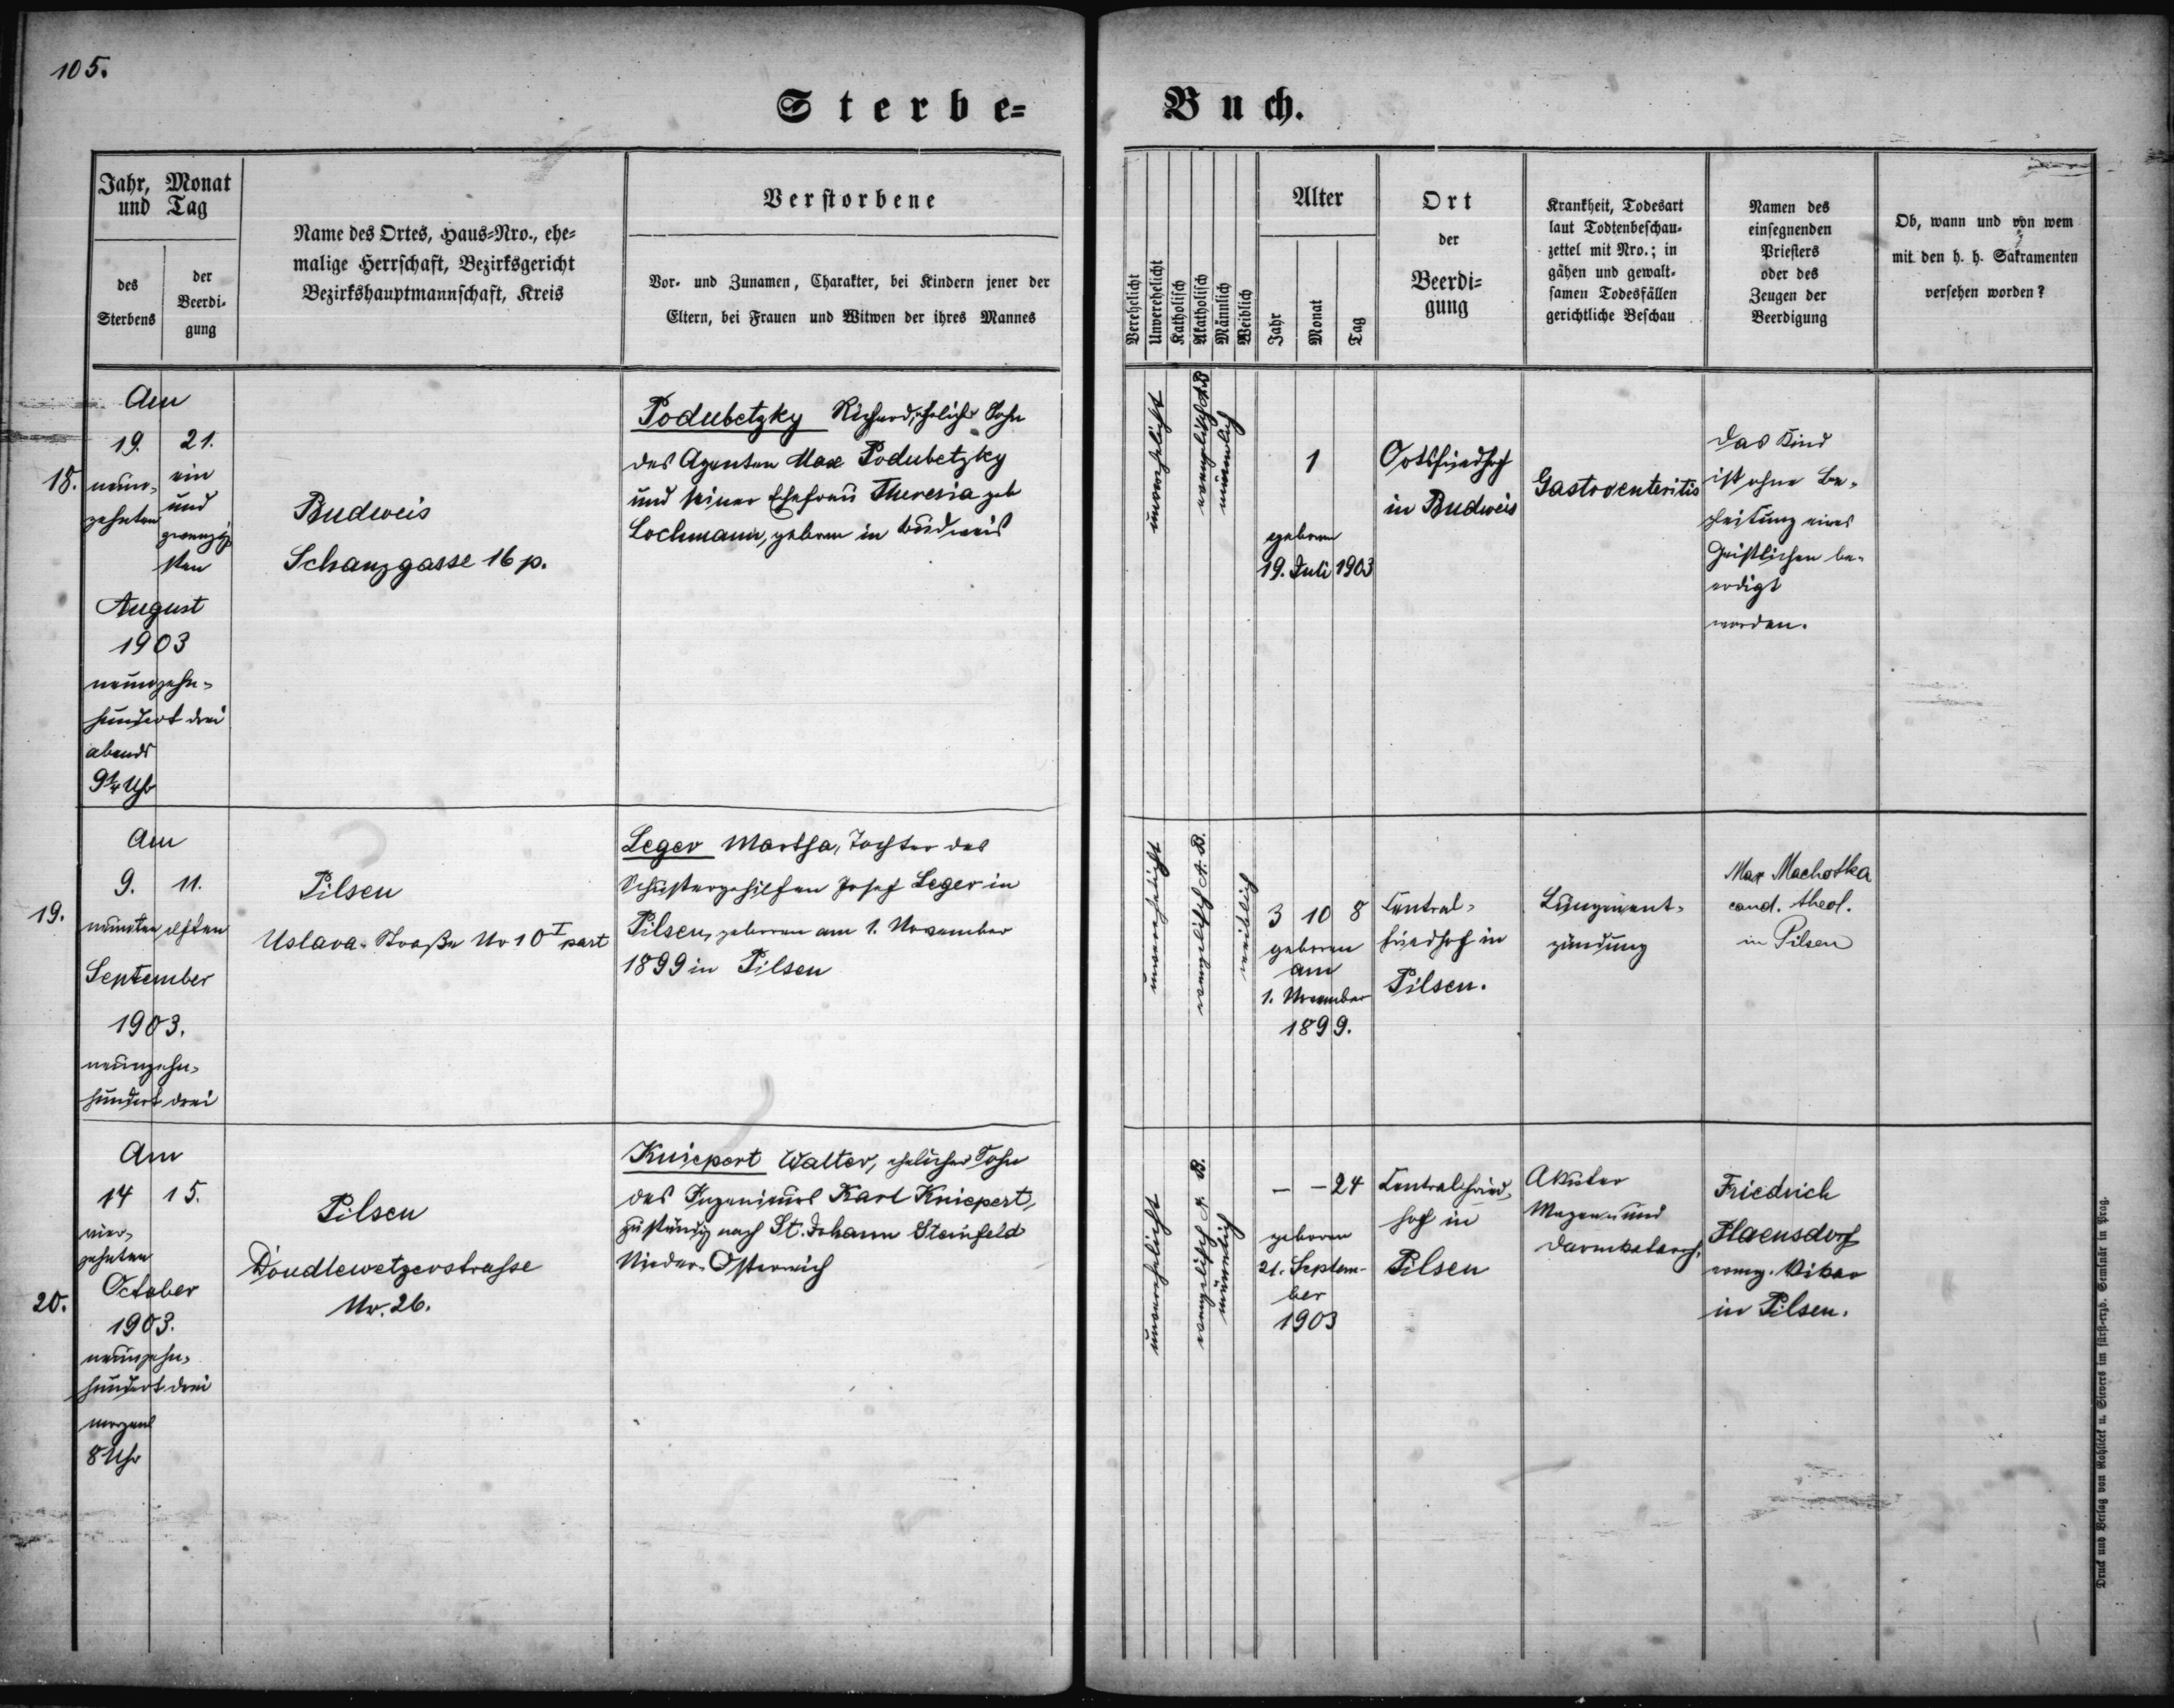 105.
Sterbe-
Buch.
Jahr, Monat
und Tag
des
Sterbens
der
Beerdi-
gung
Name des Ortes, Haus-Nro., ehe-
malige Herrschaft, Bezirksgericht
Bezirkshauptmannschaft, Kreis
Verstorbene
Vor- und Zunamen, Charakter, bei Kindern jener der
Eltern, bei Frauen und Witwen der ihres Mannes
Verehelicht
Unverehelicht
Katholisch
Akatholisch
Männlich
Weiblich
Alter
Jahr
Monat
Tag
Ort
der
Beerdi-
gung
Krankheit, Todesart
laut Todtenbeschau-
zettel mit Nro.; in
gähen und gewalt-
samen Todesfällen
gerichtliche Beschau
Namen des
einsegnenden
Priesters
oder des
Zeugen der
Beerdigung
Ob, wann und von wem
mit den h. h. Sakramenten
versehen worden?
18.
Am
19. 21.
neun-
zehnten
ein
und
zwanzig-
sten
August
1903
neunzehn-
hundert drei
abends
9¼ Uhr
Budweis
Schanzgasse 16 p.
Podubetzky Richard, ehelicher Sohn
des Agenten Max Podubetzky
und seiner Ehefrau Theresia geb
Lochmann, geboren in Budweis
unverehelicht
evangelisch A.B
männlich
1
geboren
19. Juli 1903
Ortsfriedhof
in Budweis
Gastroenteritis
Das Kind
ist ohne Be-
gleitung eines
Geistlichen be-
erdigt
worden.
19.
Am
9. 11.
neunten elften
September
1903.
neunzehn-
hundert drei
Pilsen
Uslava-Straße Nr 10 I part
Leger Martha, Tochter des
Schustergehilfen Josef Leger in
Pilsen, geboren am 1. November
1899 in Pilsen
unverehelicht
evangelisch A. B.
weiblich
3 10 8
geboren
am
1. November
1899.
Central-
friedhof in
Pilsen.
Lungenent-
zündung
Max Machotka
cand. theol.
in Pilsen
20.
Am
14 15.
vier-
zehnten
October
1903.
neunzehn-
hundert drei
morgens
8 Uhr
Pilsen
Doudlewetzerstrasse
Nr. 26.
Kniepert Walter, ehelicher Sohn
des Ingenieurs Karl Kniepert,
zuständig nach St. Johann Steinfeld
Nieder-Österreich
unverehelicht
evangelisch A. B.
männlich
– – 24
geboren
21. Septem-
ber
1903
Centralfried-
hof in
Pilsen
Akuter
Magen- und
Darmkatarrh.
Friedrich
Haensdorf
evang. Vikar
in Pilsen.
Druck und Verlag von Rohlicek u. Sievers im fürst-erzb. Seminär in Prag.